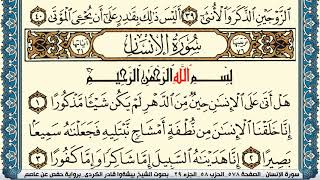 ٱلزَّوْجَيْنِ ٱلذَّكَرَ وَٱلْأُنثَىٰٓ ٣٩ أَلَيْسَ ذَٰلِكَ بِقَٰدِرٍ عَلَىٰٓ أَن يُحْۦِىَ ٱلْمَوْتَىٰ ٤٠
سُورَةُ ٱلْإِنسَان
بِسْمِ ٱللَّهِ ٱلرَّحْمَٰنِ ٱلرَّحِيمِ
هَلْ أَتَىٰ عَلَى ٱلْإِنسَٰنِ حِينٌ مِّنَ ٱلدَّهْرِ لَمْ يَكُن شَيْـًٔا مَّذْكُورًا ١
إِنَّا خَلَقْنَا ٱلْإِنسَٰنَ مِن نُّطْفَةٍ أَمْشَاجٍ نَّبْتَلِيهِ فَجَعَلْنَٰهُ سَمِيعًۢا
بَصِيرًا ٢ إِنَّا هَدَيْنَٰهُ ٱلسَّبِيلَ إِمَّا شَاكِرًا وَإِمَّا كَفُورًا ٣
سورة الإنسان الصفحة ٥٧٨ الحزب ٥٨ الجزء ٢٩ بصوت الشيخ بيشةوا قادر الكردى برواية حفص عن عاصم